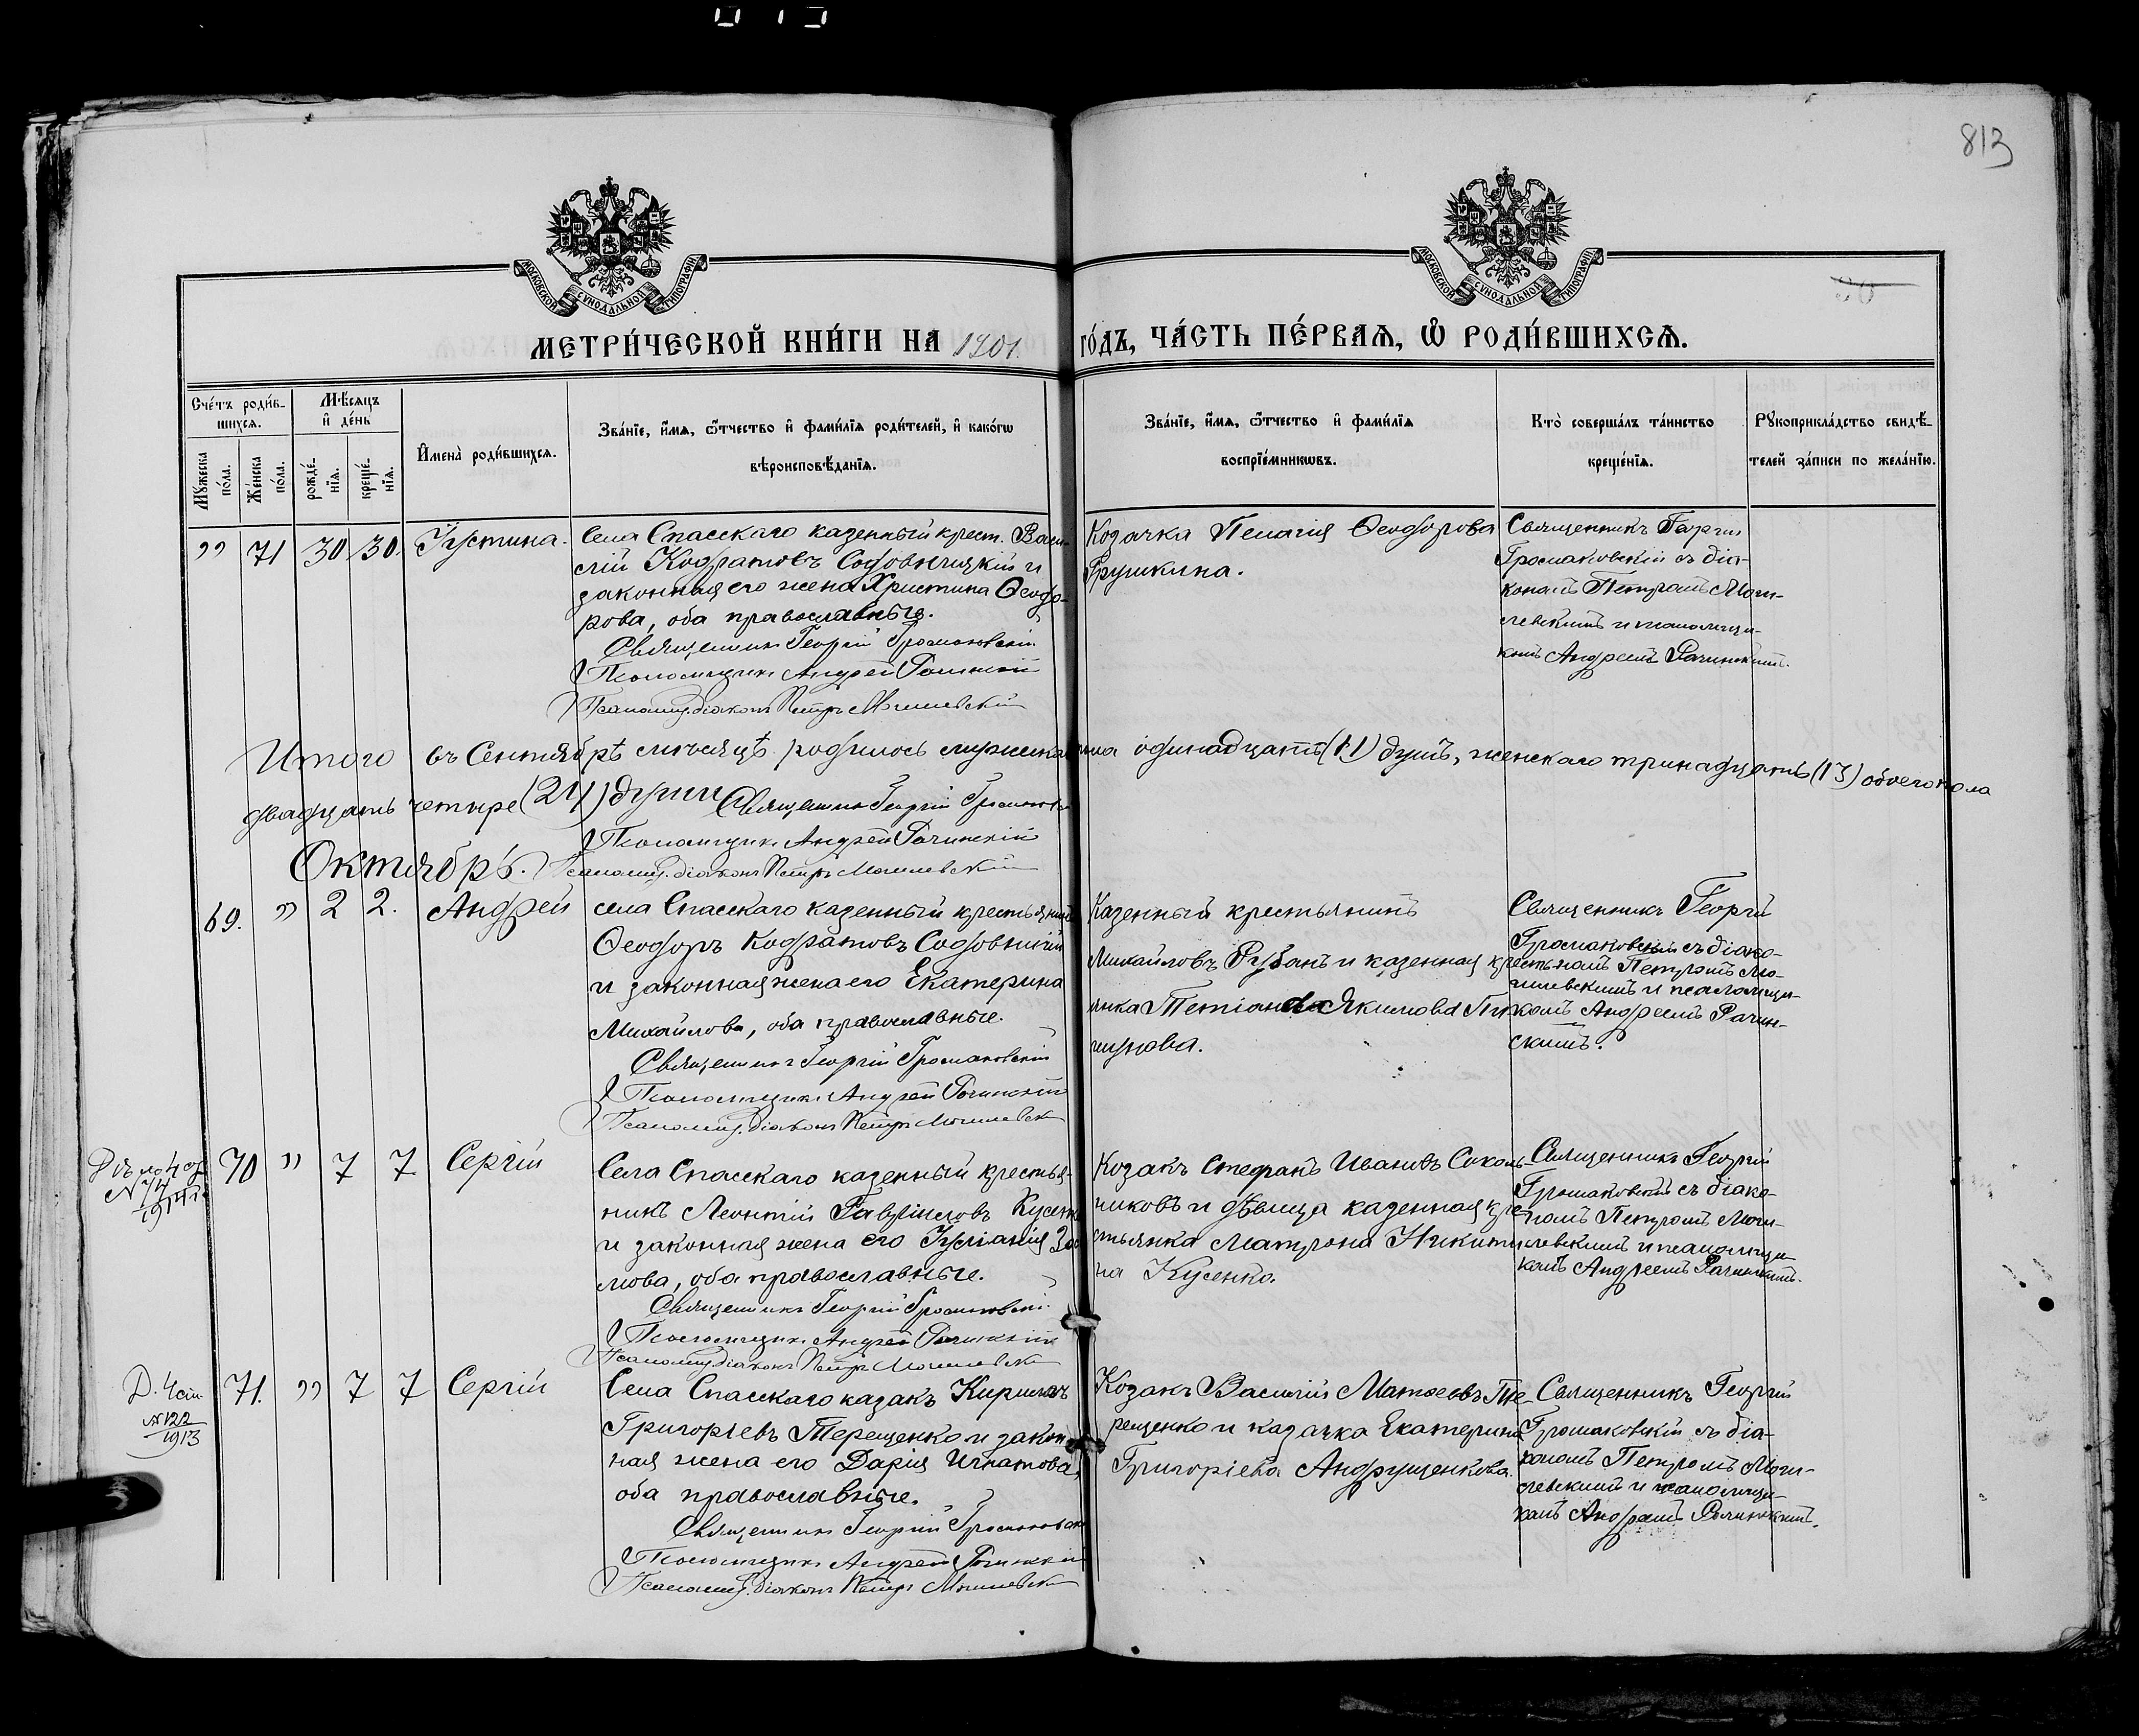 813
МОСКОВСКОЙ СѴНОДАЛЬНОЙ ТИПОГРАФІИ
МОСКОВСКОЙ СѴНОДАЛЬНОЙ ТИПОГРАФІИ
МЕТРИ́ЧЕСКОЙ КНИ́ГИ НА 1901 ГО́ДЪ, ЧА́СТЬ ПЕ́РВАѦ, Ѽ РОДИ́ВШИХСѦ.
Сче́тъ роди́в-
шихсѧ.
Мꙋ́жеска по́ла.
Же́нска по́ла.
Мѣ́сѧцъ и҆ де́нь
рожде́-нїѧ.
креще́-нїѧ.
И҆мена̀ роди́вшихсѧ.
Зва́нїе, и҆́мѧ, ѻ҆́тчество и҆ фами́лїѧ роди́телей, и҆ како́гѡ
вѣроисповѣ́данїѧ.
Зва́нїе, и҆́мѧ, ѻ҆́тчество и҆ фами́лїѧ
воспрїе́мникѡвъ.
Кто̀ соверша́лъ та́инство
креще́нїѧ.
Рꙋкоприкла́дство свидѣ́-
телей за́писи по жела́нїю.
" 71 30 30. Іустина.
Села Спасскаго казенный крест. Васи-
лій Кодратовъ Содовницкій и
законная его жена Христина Ѳеодо-
рова, оба православные.
Священникъ Георгій Громаковскій
Псаломщикъ Андрей Рачинскій
Псаломщ. діаконъ Петръ Могилевскій
Козачка Пелагія Ѳеодорова
Грушкина.
Священникъ Георгій
Громаковскій съ діа-
кономъ Петромъ Моги-
левскимъ и псаломщи-
комъ Андреемъ Рачинскимъ.
Итого въ Сентябрѣ мѣсяцѣ родилось мужска пола одинадцать (11) душъ, женскаго тринадцать (13) обоего пола
двадцать четыре (24) души Священникъ Георгій Громаковскій
Псаломщикъ Андрей Рачинскій
Октябрь. Псаломщ. діаконъ Петръ Могилевскій
69. " 2 2. Андрей
села Спасскаго казенный крестьянинъ
Ѳеодоръ Кодратовъ Содовницкій
и законная жена его Екатерина
Михайлова, оба православные.
Священникъ Георгій Громаковскій
Псаломщикъ Андрей Рачинскій
Псаломщ. діаконъ Петръ Могилевск
Казенный крестьянинъ
Михайловъ Рубанъ и казенная кресть-
янка Тетіана Якимова
Священникъ Георгій
Громаковскій съ діако-
номъ Петромъ Мо-
гилевскимъ и псаломщи-
комъ Андреемъ Рачин-
скимъ.
N 74
70 " 7 7 Сергій
Села Спасскаго казенный крестья-
нинъ Леонтій Гавріиловъ Кусенк
и законная жена его Іуліанія
мова, оба православные.
Священникъ Георгій Громаковскій.
Псаломщикъ Андрей Рачинскій
Псаломщ. діаконъ Петръ Могилевск
Козакъ Стефанъ Ивановъ Соколь-
никовъ и дѣвица казенная кре-
стьянка Матрона Никити-
на Кусенко.
Священникъ Георгій
Громаковскій съ діако-
номъ Петромъ Моги-
левскимъ и псаломщи-
комъ Андреемъ Рачинскимъ.
N 122
1913
71. " 7 7 Сергій
Села Спасскаго казакъ Кирилъ
Григорьевъ Терещенко и закон-
ная жена его Дарія Игнатова,
оба православные.
Священникъ Георгій Громаковскій
Псаломщикъ Андрей Рачинскій
Псаломщ. діаконъ Петръ Могилевск
Козакъ Василій Матѳеевъ Те-
рещенко и казачка Екатерина
Григоріева Андрущенкова.
Священникъ Георгій
Громаковскій съ діа-
кономъ Петромъ Моги-
левскимъ и псаломщи-
комъ Андреемъ Рачинскимъ.